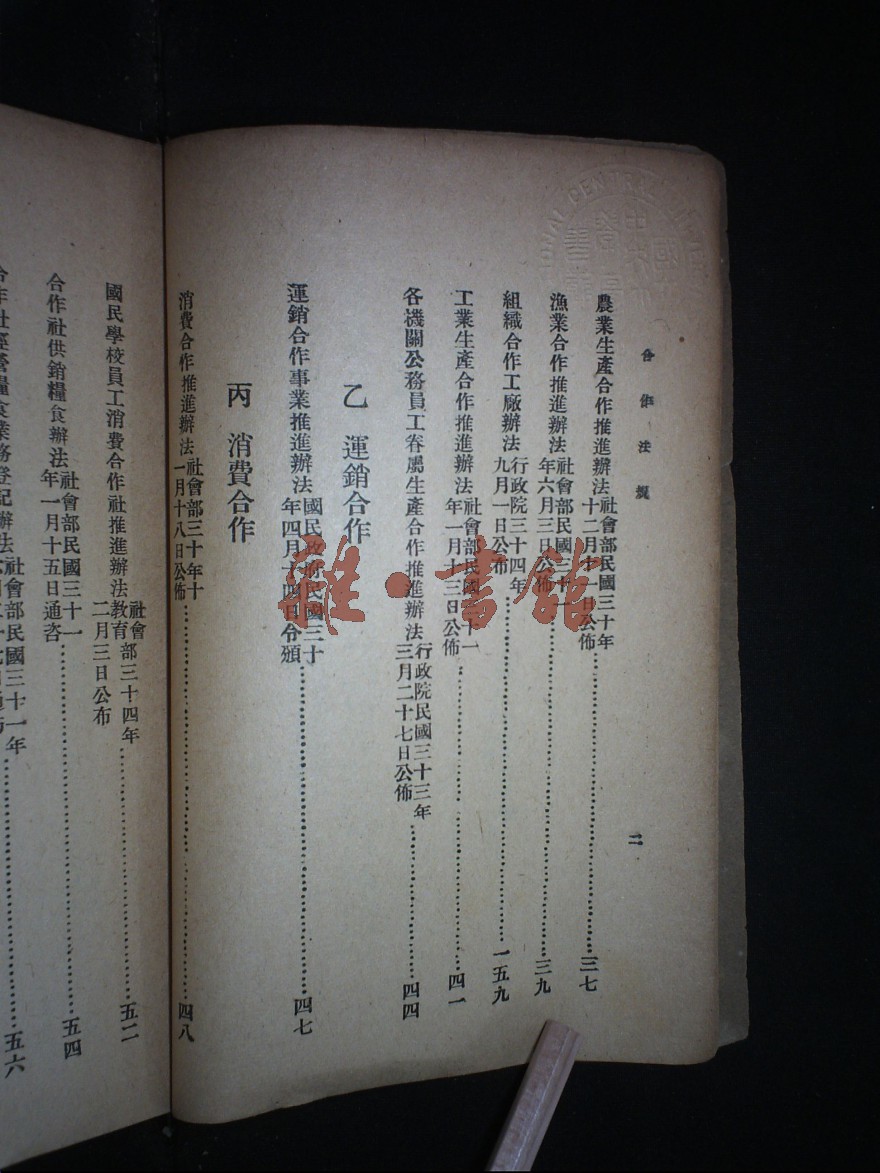 合作法規
二
農業生產合作推進辦法 社會部民國三十年十二月十一日公佈 三七
漁業合作推進辦法 社會部民國三十一年六月三日公佈 三九
組織合作工廠辦法 行政院三十四年九月一日公布 一五九
工業生產合作推進辦法 社會部民國三十一年一月十三日公佈 四一
各機關公務員工眷屬生產合作推進辦法 行政院民國三十三年三月二十七日公佈 四四
乙 運銷合作
運銷合作事業推進辦法 國民政府民國三十年四月十四日令頒 四七
丙 消費合作
消費合作推進辦法 社會部三十年十一月十八日公佈 四八
國民學校員工消費合作社推進辦法 社會教育部三十四年二月三日公布 五二
合作社供銷糧食辦法 社會部民國三十一年一月十五日通咨 五四
合作社經營糧食業務登記辦法 社會部民國三十一年 五六
雜·書館